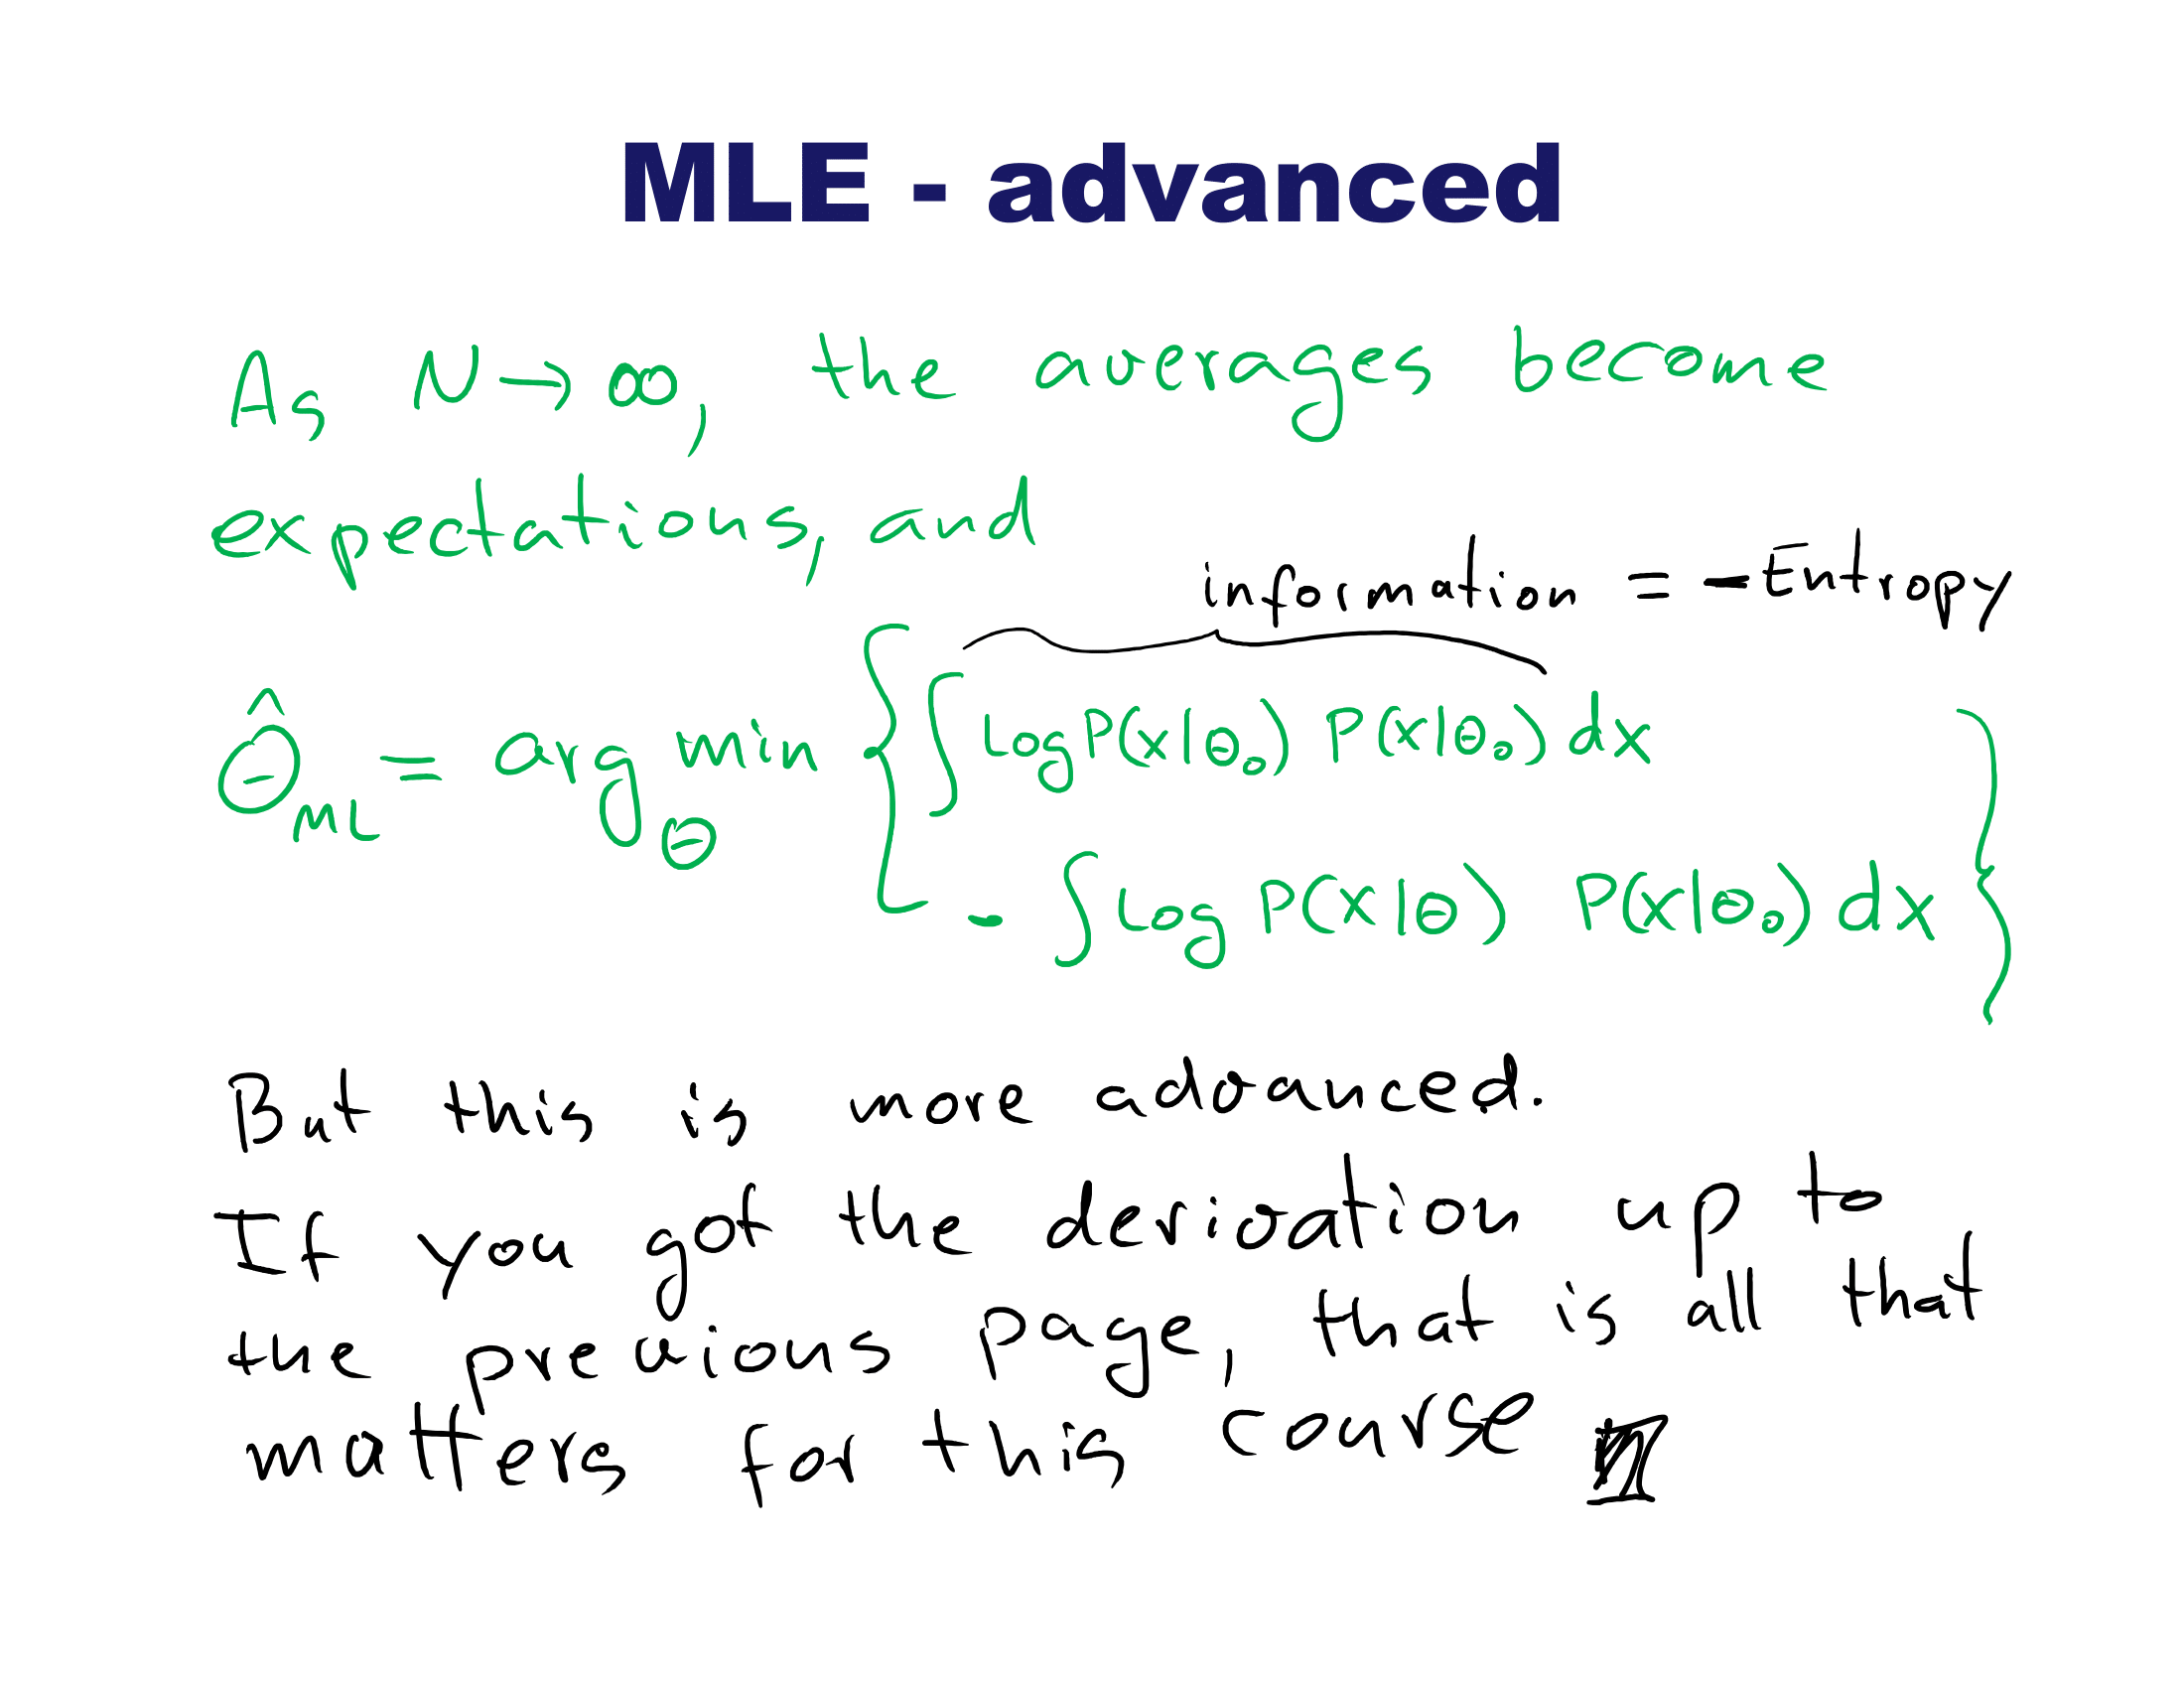 MLE - advanced
As N → ∞, the averages become
expectations, and
information = - Entropy
θ̂_ML = arg min_θ { ∫ log P(x|θ₀) P(x|θ₀) dx
- ∫ log P(x|θ) P(x|θ₀) dx }
But this is more advanced.
If you got the derivation up to
the previous page, that is all that
matters for this course